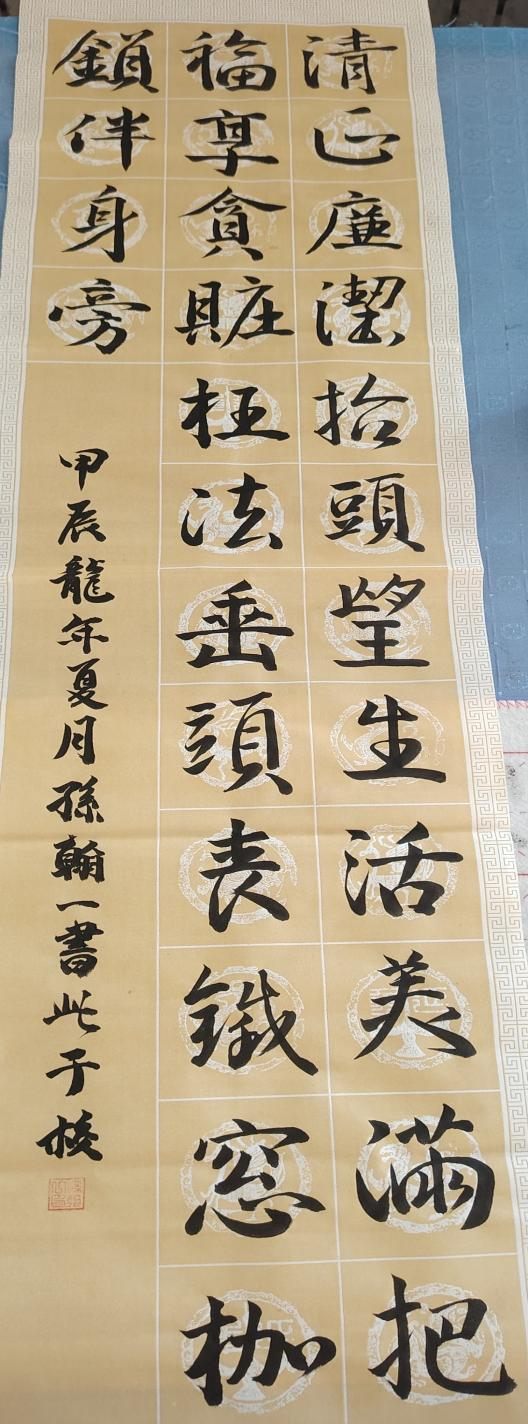 清正廉潔抬頭望生活美滿把
福享貪賍枉法垂頭丧鐵窓枷
鎖伴身旁
甲辰龍年夏月孫翰一書此于校